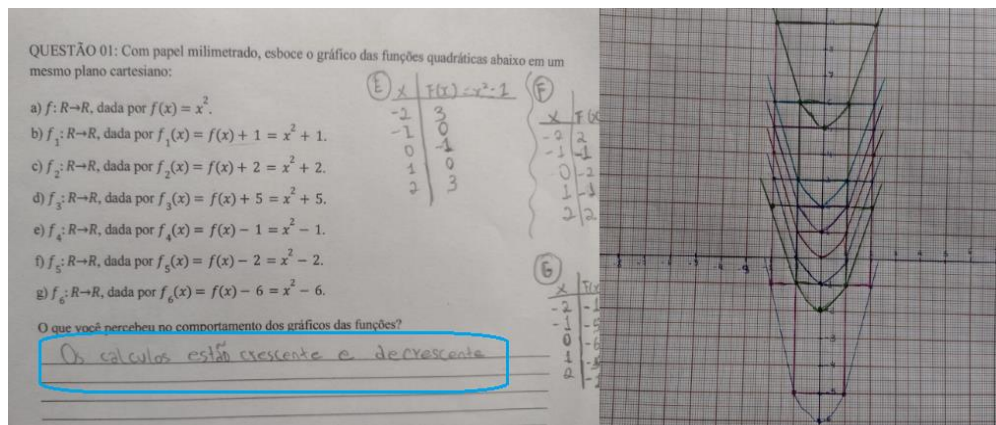 QUESTÃO 01: Com papel milimetrado, esboce o gráfico das funções quadráticas abaixo em um
mesmo plano cartesiano:
a) f: R→R, dada por f(x) = x².
b) f₁: R→R, dada por f₁(x) = f(x) + 1 = x² + 1.
c) f₂: R→R, dada por f₂(x) = f(x) + 2 = x² + 2.
d) f₃: R→R, dada por f₃(x) = f(x) + 5 = x² + 5.
e) f₄: R→R, dada por f₄(x) = f(x) − 1 = x² − 1.
f) f₅: R→R, dada por f₅(x) = f(x) − 2 = x² − 2.
g) f₆: R→R, dada por f₆(x) = f(x) − 6 = x² − 6.
O que você percebeu no comportamento dos gráficos das funções?
Os calculos estão crescente e decrescente
E
X F(x) = x² - 1
-2 3
-1 0
0 -1
1 0
2 3
F
X F(x
-2 2
-1 -1
0 -2
1 -1
2 2
G
X F(x
-2
-1
0 -6
1
2